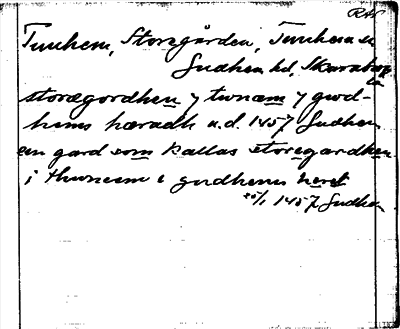 RAP
Tunhem, Storegården, Tunhem sn
Gudhem hd, Skarab. län
storægordhen y twnæm y gwd-
hems hæradh u.d. 1457 Gudhem
en gard som kallas storegardhen
i thuneem i gudhems heret
25/1 1457 Gudhem